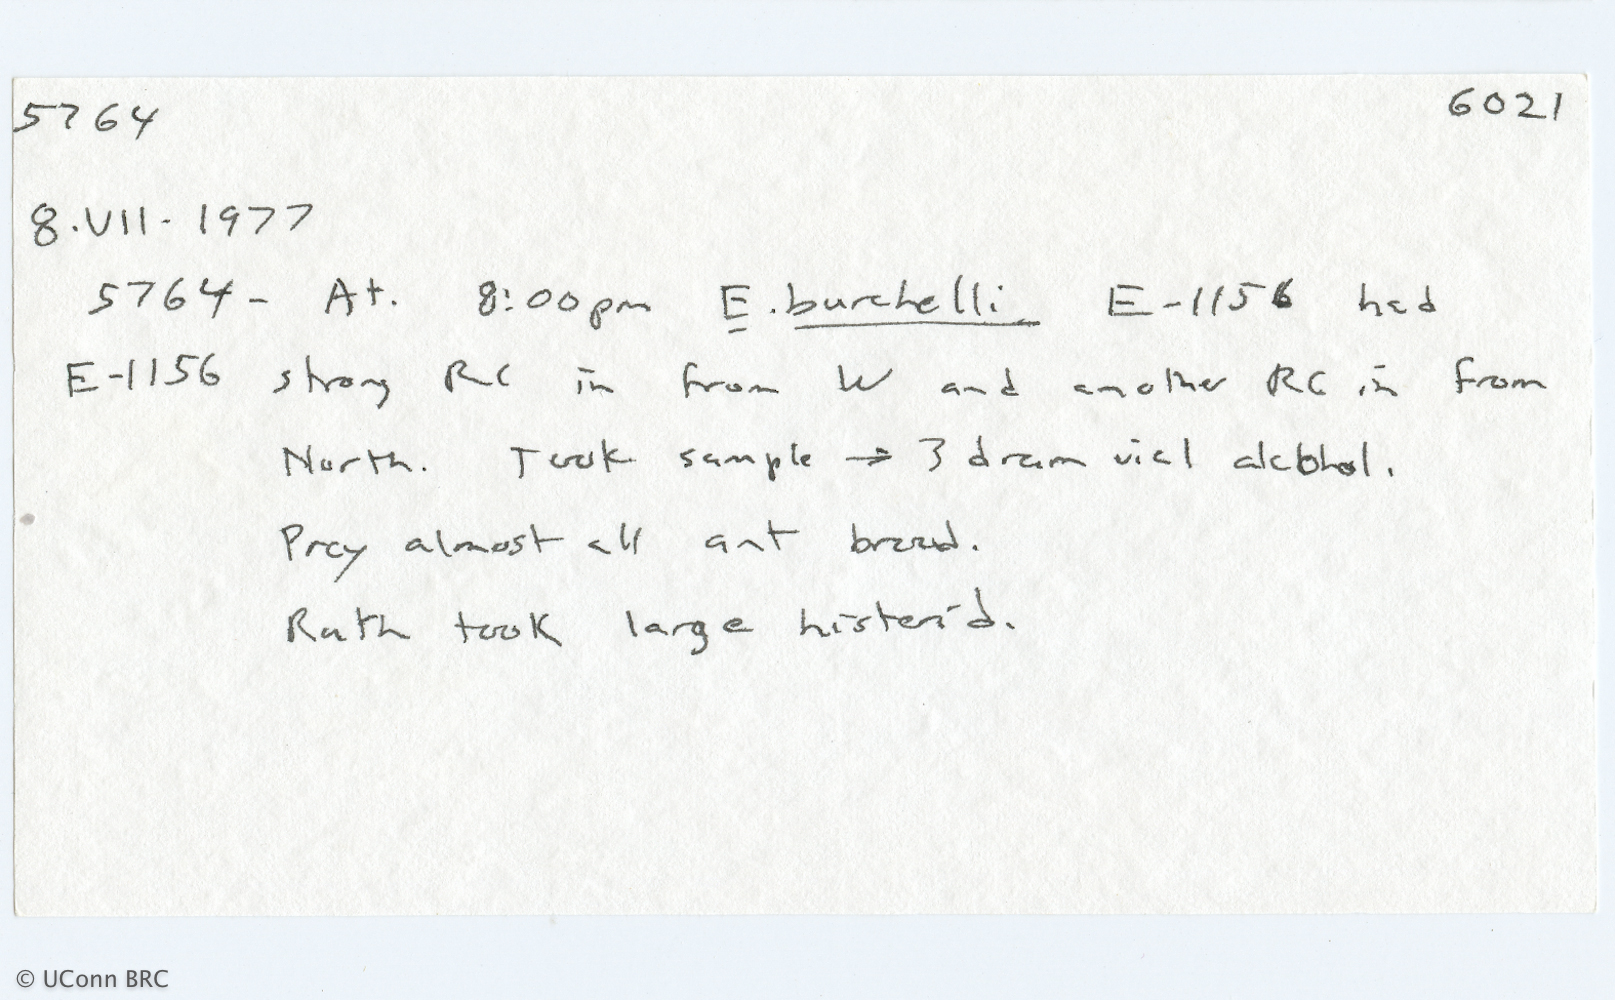 5764 6021
8.VII-1977
5764- At. 8:00pm E.burchelli E-1156 had
E-1156 strong RC in from W and another RC in from
North. Took sample → 3 dram vial alcohol.
Prey almost all ant brood.
Ruth took large histerid.
© UConn BRC